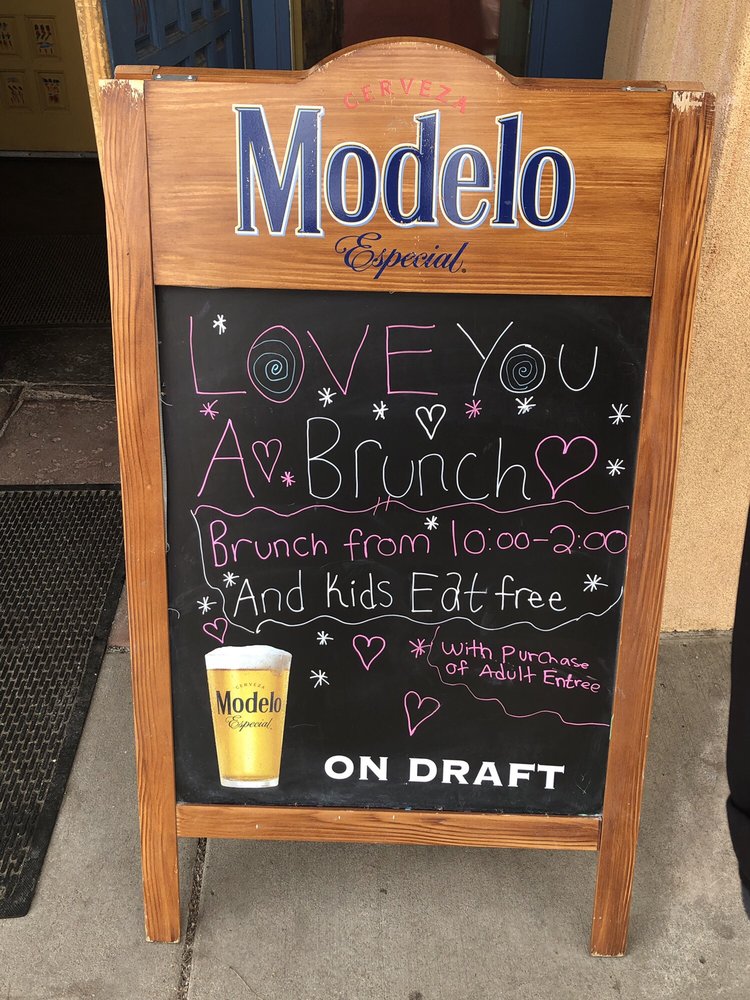 CERVEZA
Modelo
Especial
LOVE YOU
A Brunch
Brunch from 10:00-2:00
And Kids Eat free
* With Purchase
of Adult Entree
CERVEZA
Modelo
Especial
ON DRAFT